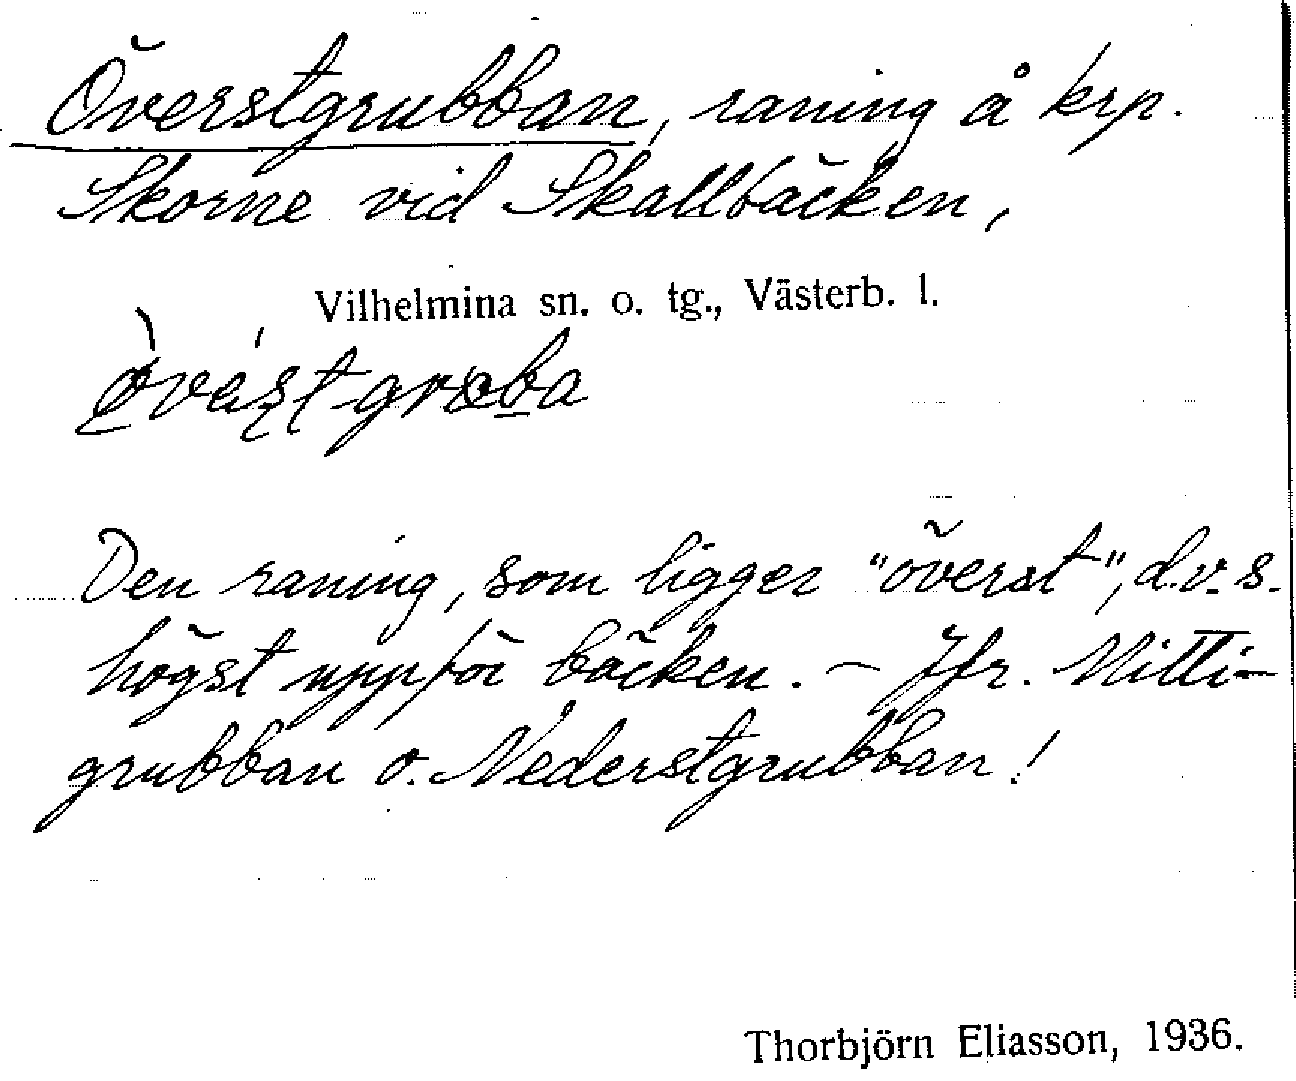 Överstgrubban, raning å krp.
Skorne vid Skallbäcken,
Vilhelmina sn. o. tg., Västerb. l.
Den raning, som ligger "överst", d.v.s.
högst uppför bäcken. – Jfr. Mitti-
grubban o. Nederstgrubban!
Thorbjörn Eliasson, 1936.